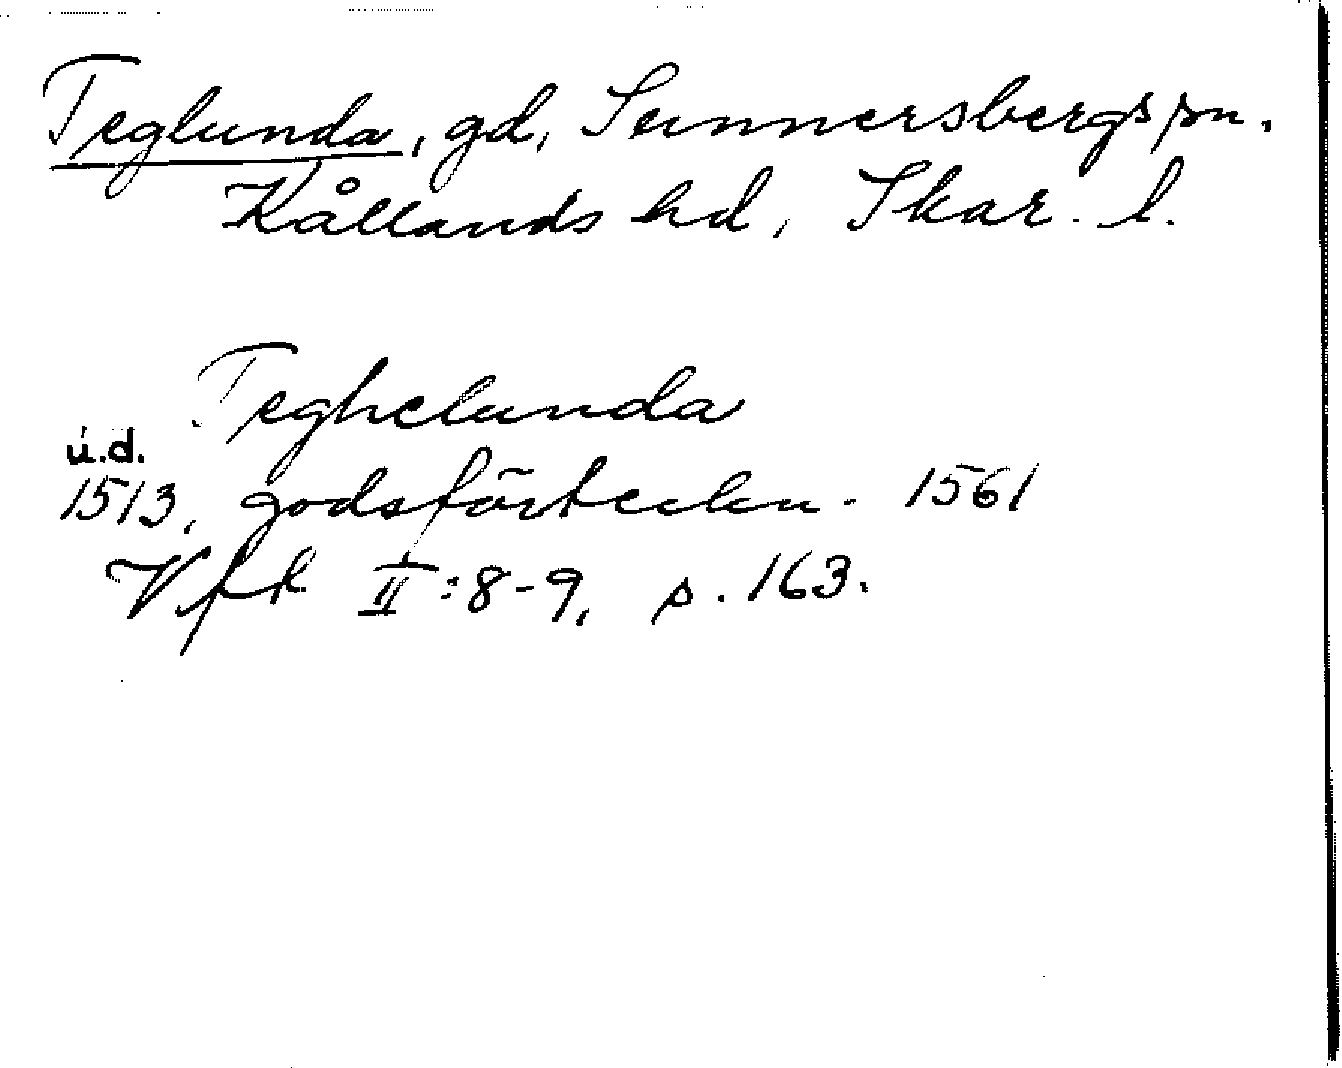 Teglunda, gd, Sunnersbergs sn.
Kållands hd, Skar. l.
Teghelunda
u.d.
1513, godsförteckn. 1561
Vft II:8-9, s. 163.